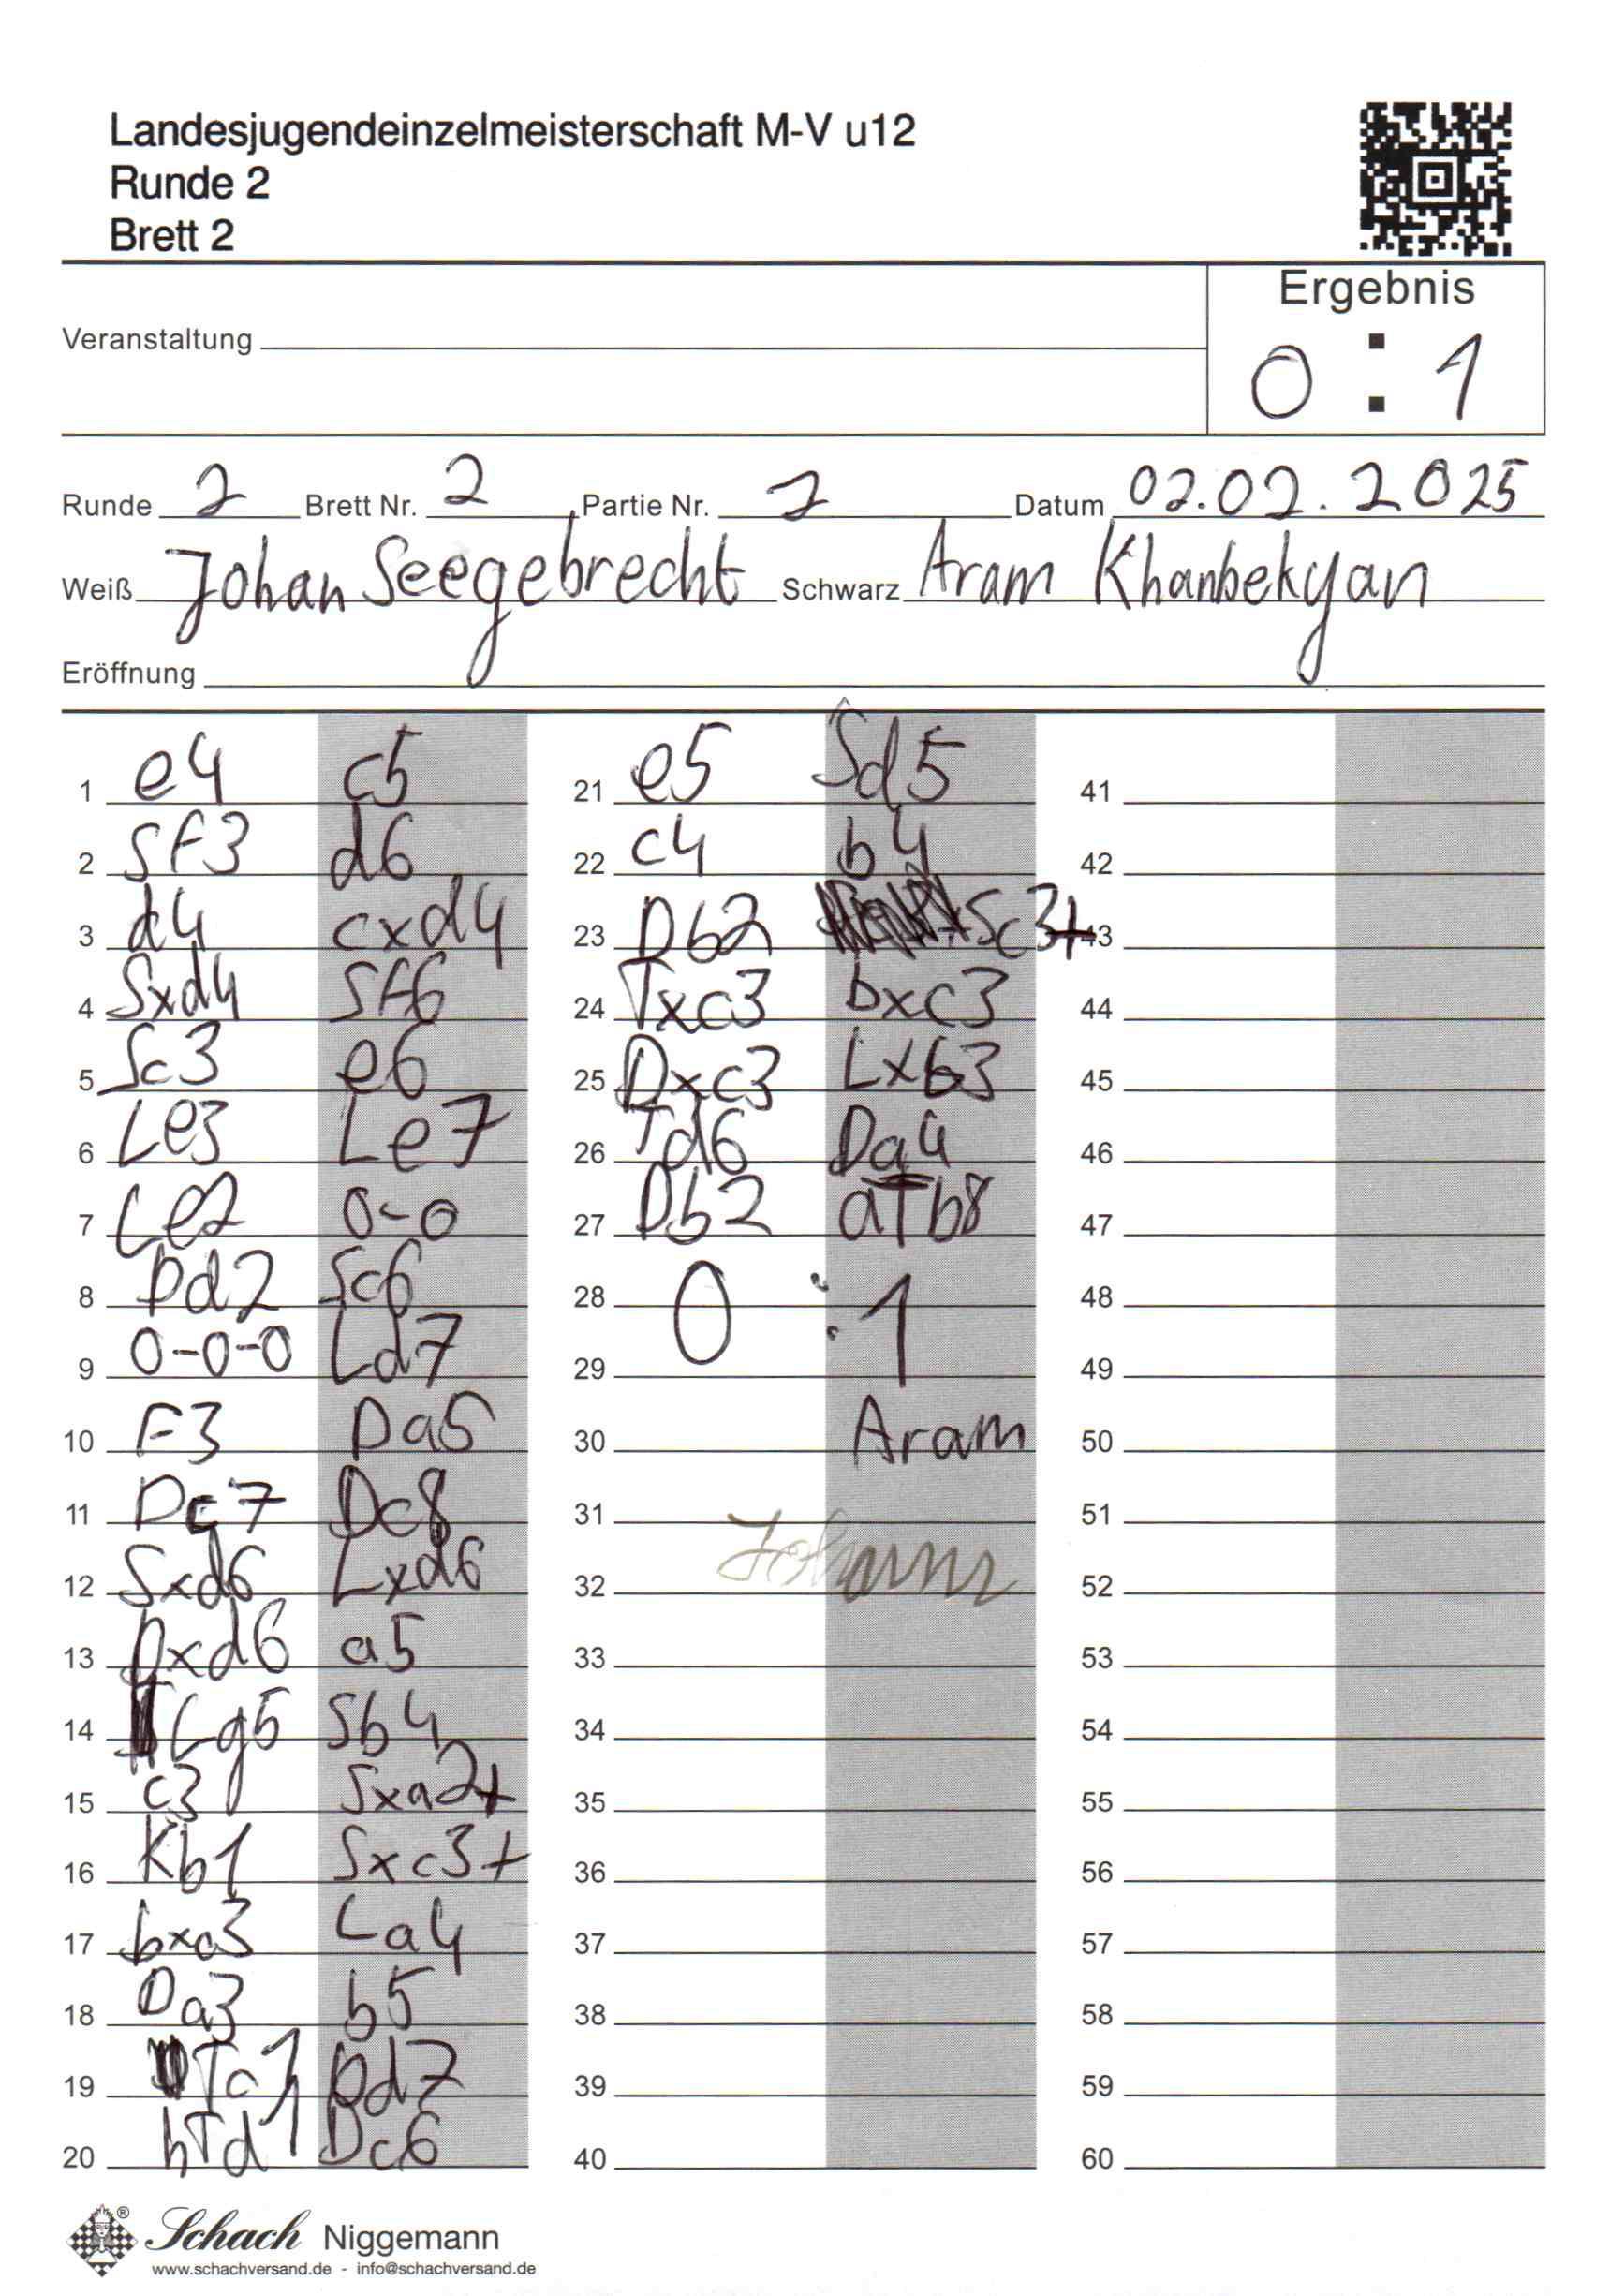 Landesjugendeinzelmeisterschaft M-V u12
Runde 2
Brett 2
Ergebnis
Veranstaltung
0 : 1
Runde 2 Brett Nr. 2 Partie Nr. 2 Datum 02.02.2025
Weiß Johan Seegebrecht Schwarz Aram Khanbekyan
Eröffnung
1 e4 c5
2 Sf3 d6
3 d4 cxd4
4 Sxd4 Sf6
5 Sc3 e6
6 Le3 Le7
7 Le2 0-0
8 Dd2 Sc6
9 0-0-0 Ld7
10 F3 Da5
11 Dc7 Dc8
12 Sxd6 Lxd6
13 Dxd6 a5
14 Lg5 Sb4
15 c3 Sxa2+
16 Kb1 Sxc3+
17 bxc3 La4
18 Da3 b5
19 Tc1 Dd7
20 hTd1 Dc6
21 e5 Sd5
22 c4 b4
23 Db2 Sc3+
24 Txc3 bxc3
25 Dxc3 Lxb3
26 Td6 Da4
27 Db2 aTb8
28 0 : 1
29
30 Aram
31
32 Johann
33
34
35
36
37
38
39
40
41
42
43
44
45
46
47
48
49
50
51
52
53
54
55
56
57
58
59
60
® Schach Niggemann
www.schachversand.de - info@schachversand.de